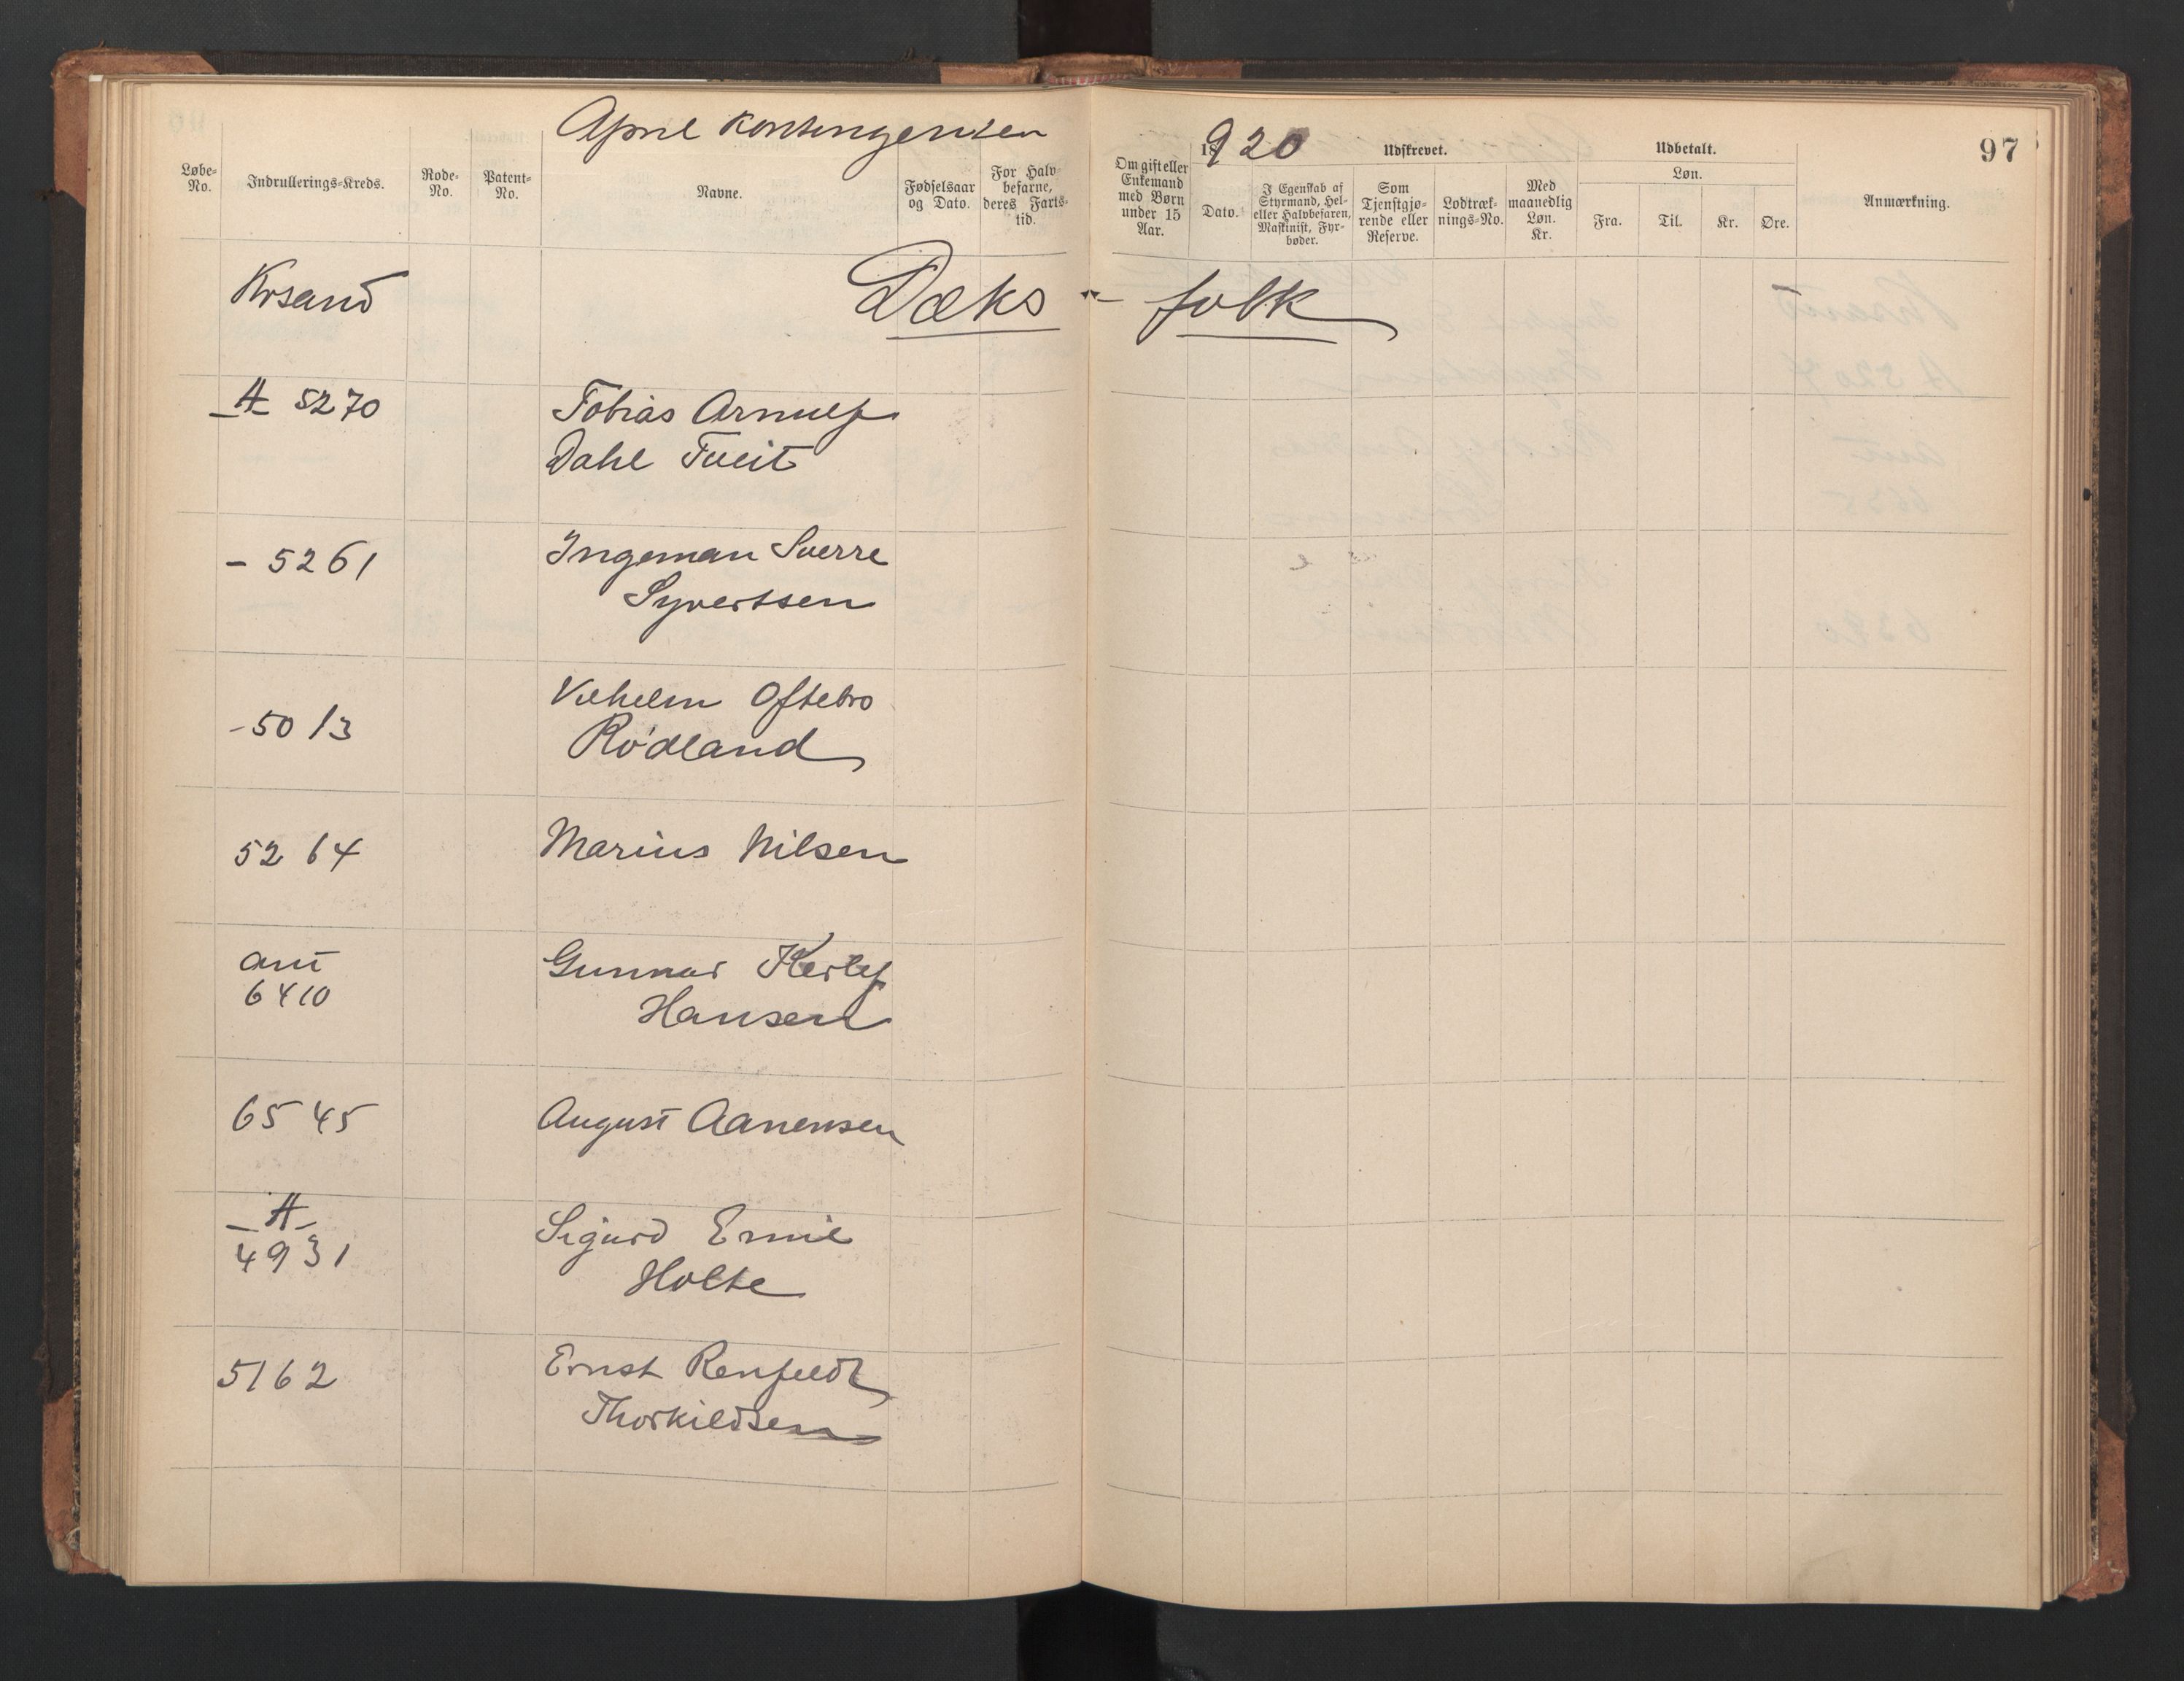 April Kontingenten 1920
97
Løbe-No.
Indrullerings-Kreds.
Rode-No.
Patent-No.
Navne.
Fødselsaar og Dato.
For Halvbefarne, deres Fartstid.
Om gift eller Enkemand med Børn under 15 Aar.
Udskrevet.
Dato.
I Egenskab af Styrmand, Hel- eller Halvbefaren, Maskinist, Fyrbøder.
Som Tjenstgjørende eller Reserve.
Lodtræknings-No.
Med maanedlig Løn. Kr.
Udbetalt.
Løn.
Fra.
Til.
Kr.
Øre.
Anmærkning.
Krsand
Dæks - folk
A 5270 Tobias Arnulf
Dahl Tveit
- 5261 Ingeman Sverre
Syvertsen
- 5013 Vilhelm Oftebro
Rødland
5264 Marius Nilsen
ant
6410
Gunnar Kerlef
Hansen
6545 August Aanensen
A
4931
Sigurd Emil
Holte
5162 Ernst Renfeldt
Thorkildsen